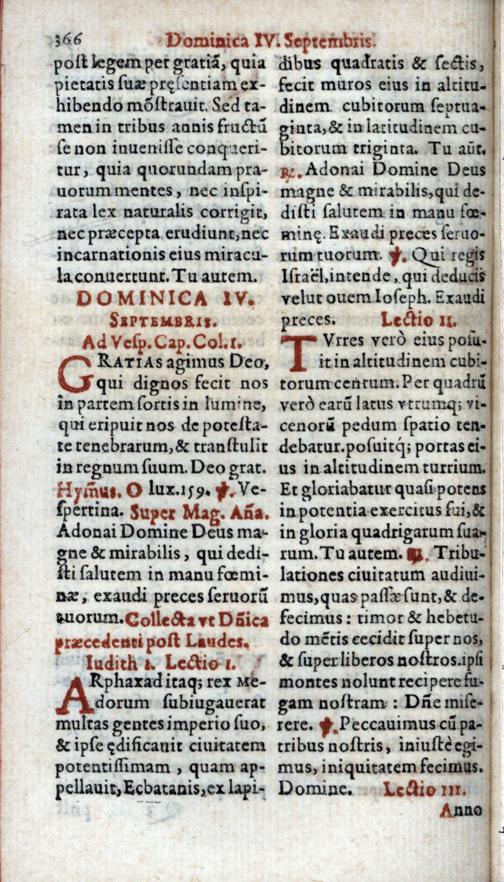 366 Dominica IV. Septembris.
post legem per gratiā, quia
pietatis suæ pręsentiam ex-
hibendo mōstrauit. Sed ta-
men in tribus annis fructū
se non inuenisse conqueri-
tur, quia quorundam pra-
uorum mentes, nec inspi-
rata lex naturalis corrigit,
nec præcepta erudiunt, nec
incarnationis eius miracu-
la conuertunt. Tu autem.
DOMINICA IV.
SEPTEMBRIS.
Ad Vesp. Cap. Col. 1.
GRATIAS agimus Deo,
qui dignos fecit nos
in partem sortis in lumine,
qui eripuit nos de potesta-
te tenebrarum, & transtulit
in regnum suum. Deo grat.
Hym̄us. O lux. 159. ℣. Ve-
spertina. Super Mag. Aña.
Adonai Domine Deus ma-
gne & mirabilis, qui dedi-
sti salutem in manu fœmi-
næ, exaudi preces seruorū
tuorum. Collecta vt Dñica
præcedenti post Laudes.
Iudith 1. Lectio 1.
ARphaxad itaq; rex Me-
dorum subiugauerat
multas gentes imperio suo,
& ipse ędificauit ciuitatem
potentissimam, quam ap-
pellauit, Ecbatanis, ex lapi-
dibus quadratis & sectis,
fecit muros eius in altitu-
dinem cubitorum septua-
ginta, & in latitudinem cu-
bitorum triginta. Tu aūt.
℟. Adonai Domine Deus
magne & mirabilis, qui de-
disti salutem in manu fœ-
minę. Exaudi preces seruo-
rum tuorum. ℣. Qui regis
Israël, intende, qui deducis
velut ouem Ioseph. Exaudi
preces. Lectio II.
TVrres verò eius posu-
it in altitudinem cubi-
torum centum. Per quadrū
verò earū latus vtrumq; vi-
cenorū pedum spatio ten-
debatur. posuitq́; portas ei-
us in altitudinem turrium.
Et gloriabatur quasi potens
in potentia exercitus sui, &
in gloria quadrigarum sua-
rum. Tu autem. ℟. Tribu-
lationes ciuitatum audiui-
mus, quas passæ sunt, & de-
fecimus: timor & hebetu-
do mētis cecidit super nos,
& super liberos nostros. ipsi
montes nolunt recipere fu-
gam nostram: Dñe mise-
rere. ℣. Peccauimus cū pa-
tribus nostris, iniustè egi-
mus, iniquitatem fecimus.
Domine. Lectio III.
Anno